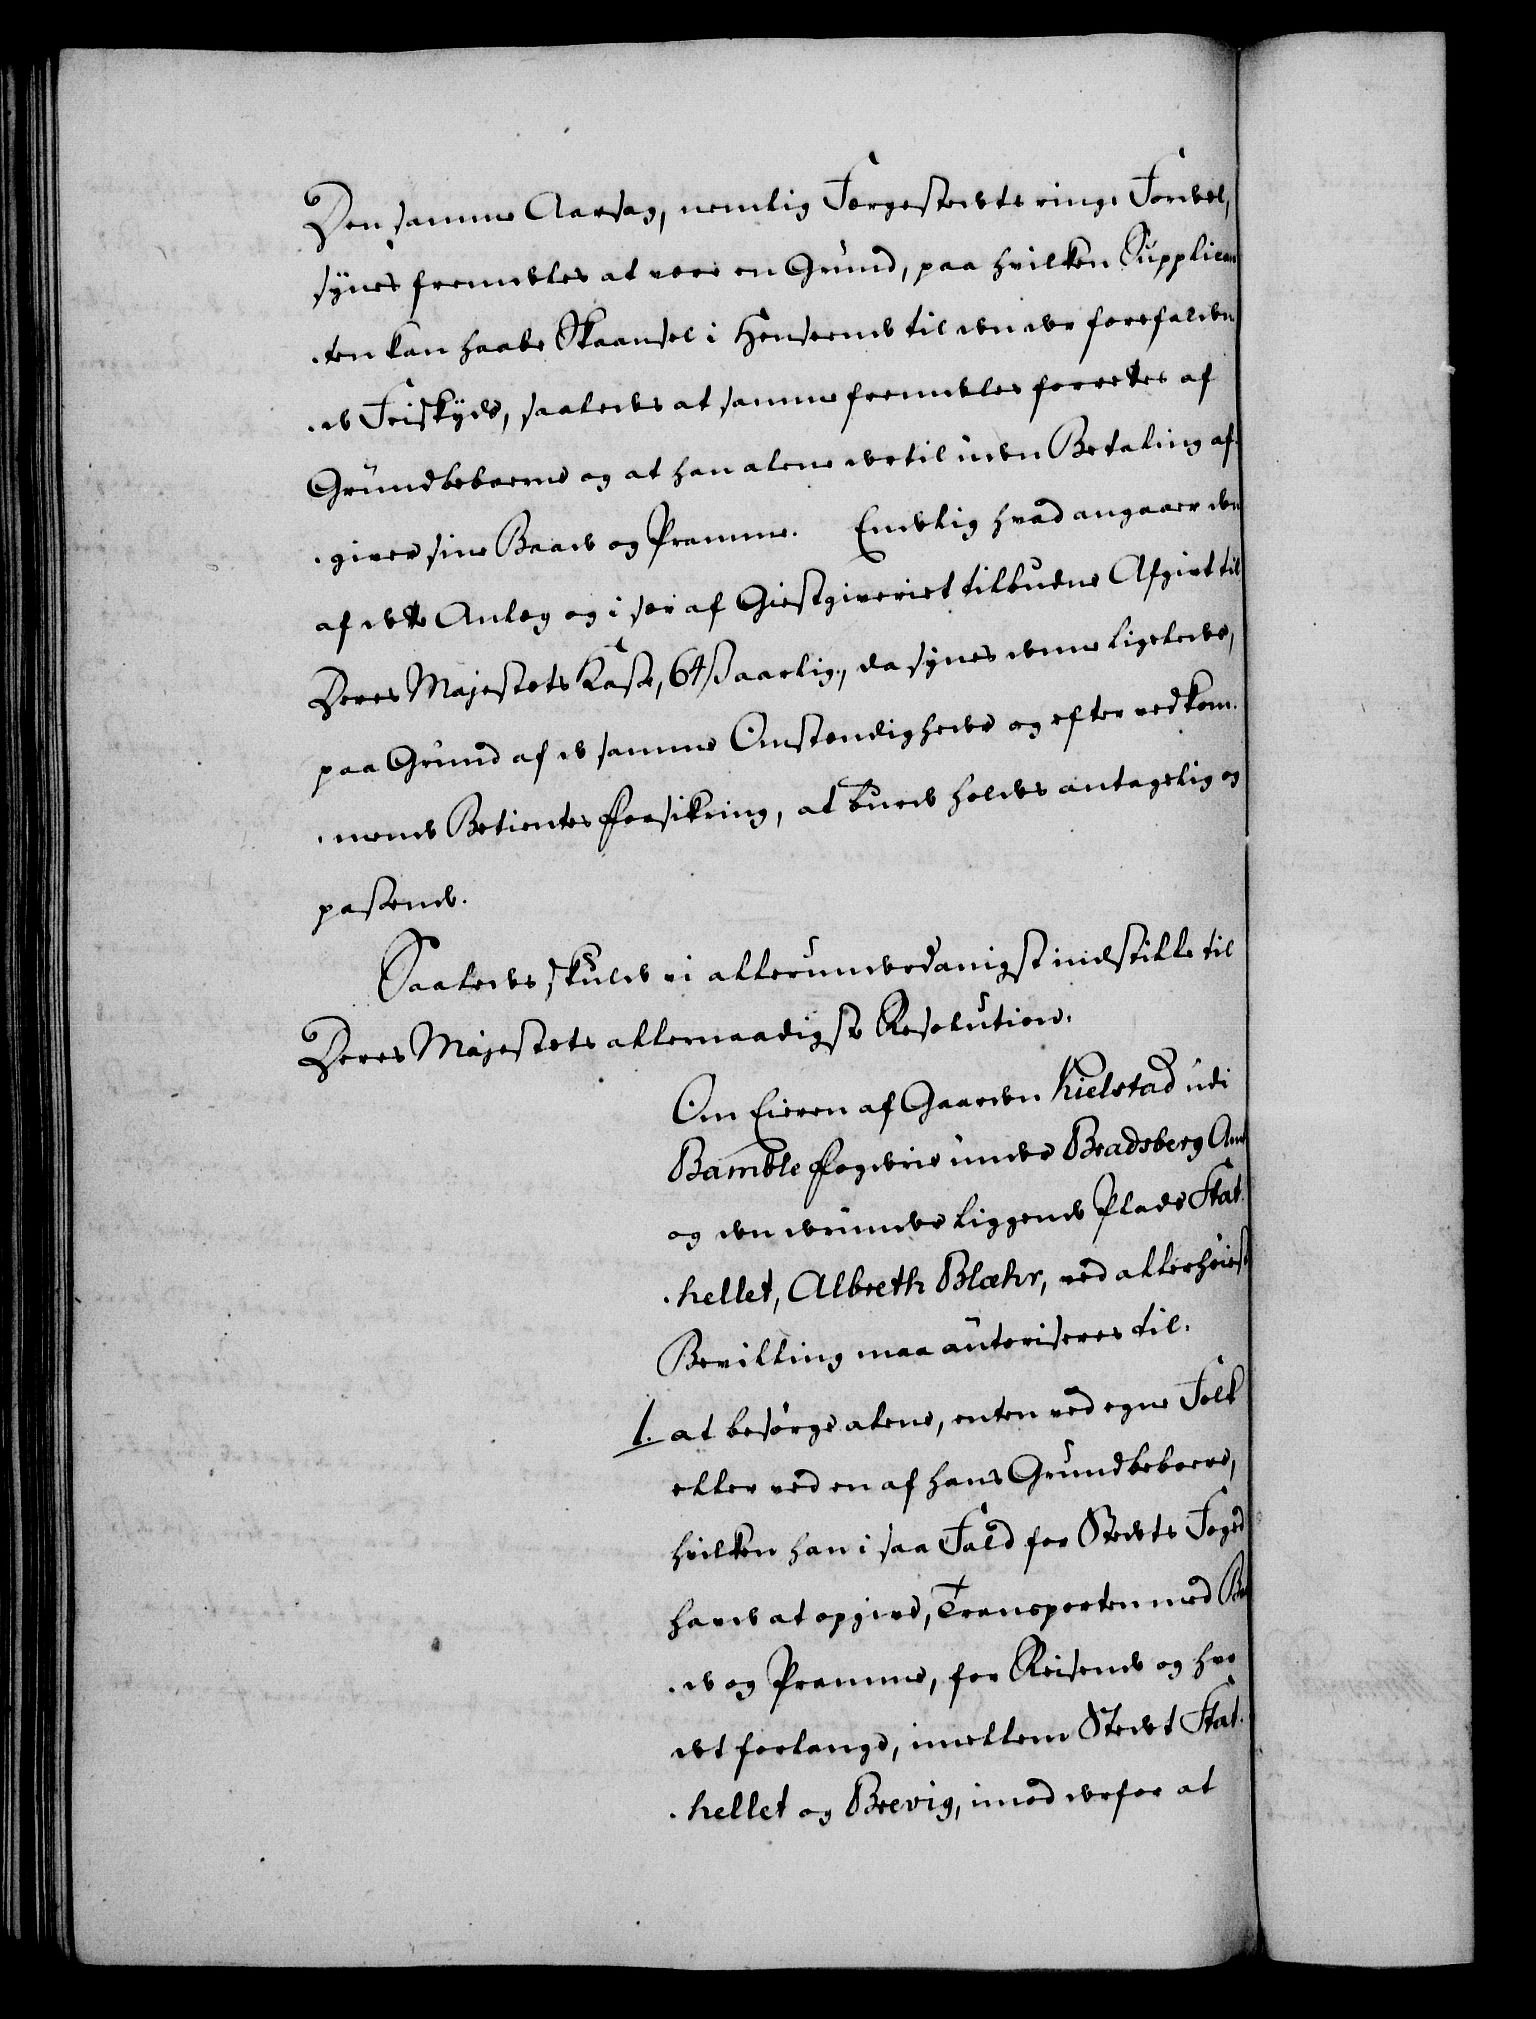 Den samme Aarsag, nemlig Færgestedets ringe Fordel,
synes fremdeles at være en Grund, paa hvilken Supplican
ten kan haabe Skaansel i Henseende til den der forefalden
de Friskyds, saaledes at samme fremdeles forrettes af
Grundbeboerne og at han alene dertil uden Betaling af
giver sine Baade og Pramme. Endelig hvad angaaer den
af dette Anlæg og i sær af Giestgiveriet tilbudne Afgivt til
Deres Majestets Kasse, 64 ß aarlig, da synes denne ligeledes,
paa Grund af de samme Omstændigheder og efter vedkom
mende Betientes Forsikring, at burde holdes antagelig og
passende.
Saaledes skulde vi allerunderdanigst indstille til
Deres Majestets allernaadigste Resolution.
Om Eieren af Gaarden Kielstad udi
Bamble Fogderie under Bradsberg Amt
og den derunder liggende Plads Stat
hellet, Albreth Blæhr, ved allerhøiest
Bevilling maa autoriseres til.
1. at besørge alene, enten ved egne Folk
eller ved en af hans Grundbeboere,
hvilken han i saa Fald for Stedets Foged
havde at opgive, Transporten med Baa
de og Pramme, for Reisende og hvo
det forlange, imellem Stedet Stat
hellet og Brevig, imod derfor at